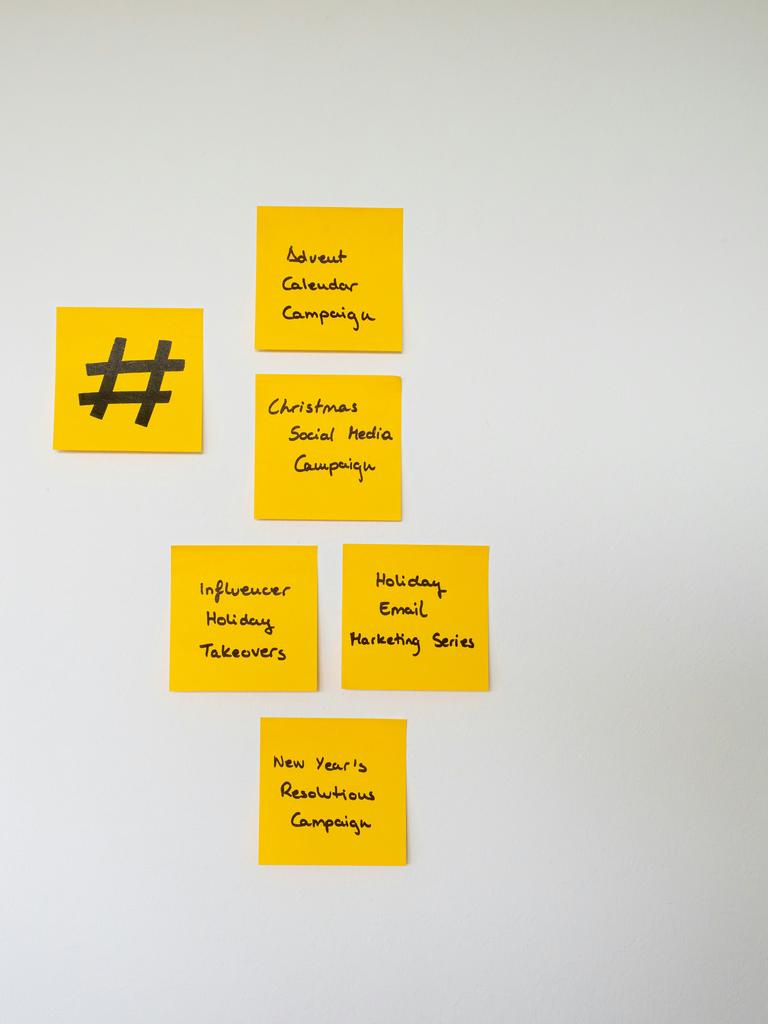 Advent
Calendar
Campaign
#
Christmas
Social Media
Campaign
Influencer
Holiday
Takeovers
Holiday
Email
Marketing Series
New Year's
Resolutions
Campaign